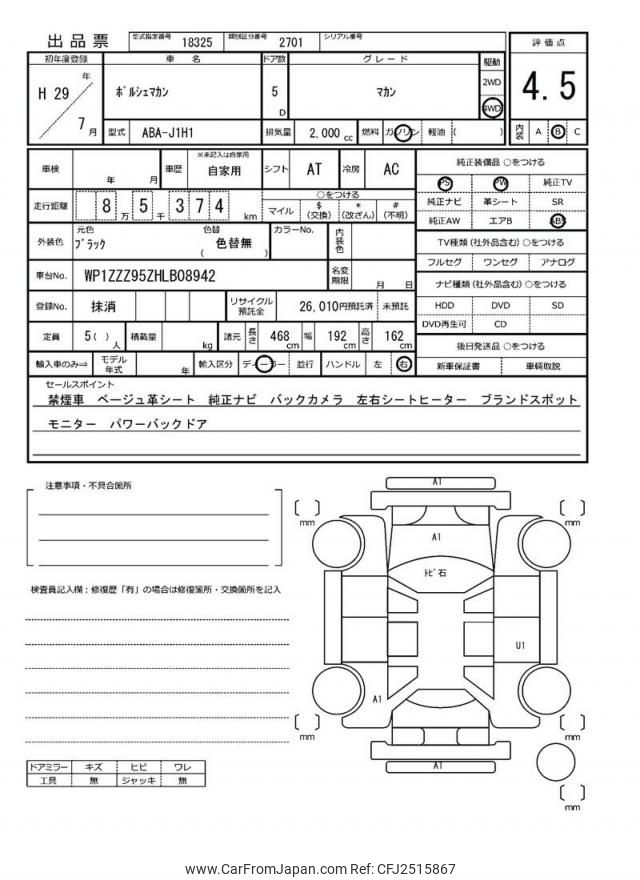 出品票 型式指定番号 18325 類別区分番号 2701 シリアル番号
初年度登録 車名 ドア数 グレード 駆動 評価点
H 29 年 7 月 ポルシェマカン 5 D マカン 2WD 4WD 4.5
型式 ABA-J1H1 排気量 2,000 cc 燃料 ガソリン 軽油 ( ) 内装 A B C
車検 年 月 車歴 ※未記入は自家用 自家用 シフト AT 冷房 AC 純正装備品 ○をつける
PS PW 純正TV
走行距離 8 万 5 千 3 7 4 km ○をつける 純正ナビ 革シート SR
マイル $ (交換) * (改ざん) # (不明) 純正AW エアB ABS
外装色 元色 ブラック 色替 色替無 ( ) カラーNo. 内装色 TV種類 (社外品含む) ○をつける
フルセグ ワンセグ アナログ
車台No. WP1ZZZ95ZHLB08942 名変期限 月 日 ナビ種類 (社外品含む) ○をつける
登録No. 抹消 リサイクル預託金 26,010円預託済 未預託 HDD DVD SD
DVD再生可 CD
定員 5( ) 人 積載量 kg 諸元 長さ 468 cm 幅 192 cm 高さ 162 cm 後日発送品 ○をつける
輸入車のみ⇒ モデル年式 年 輸入区分 ディーラー 並行 ハンドル 左 右 新車保証書 車輌取説
セールスポイント
禁煙車 ベージュ革シート 純正ナビ バックカメラ 左右シートヒーター ブランドスポット
モニター パワーバックドア
注意事項・不具合箇所
検査員記入欄：修復歴「有」の場合は修復箇所・交換箇所を記入
A1
mm
mm
A1
トビ石
U1
A1
mm
mm
A1
mm
ドアミラー キズ ヒビ ワレ
工具 無 ジャッキ 無
www.CarFromJapan.com Ref: CFJ2515867